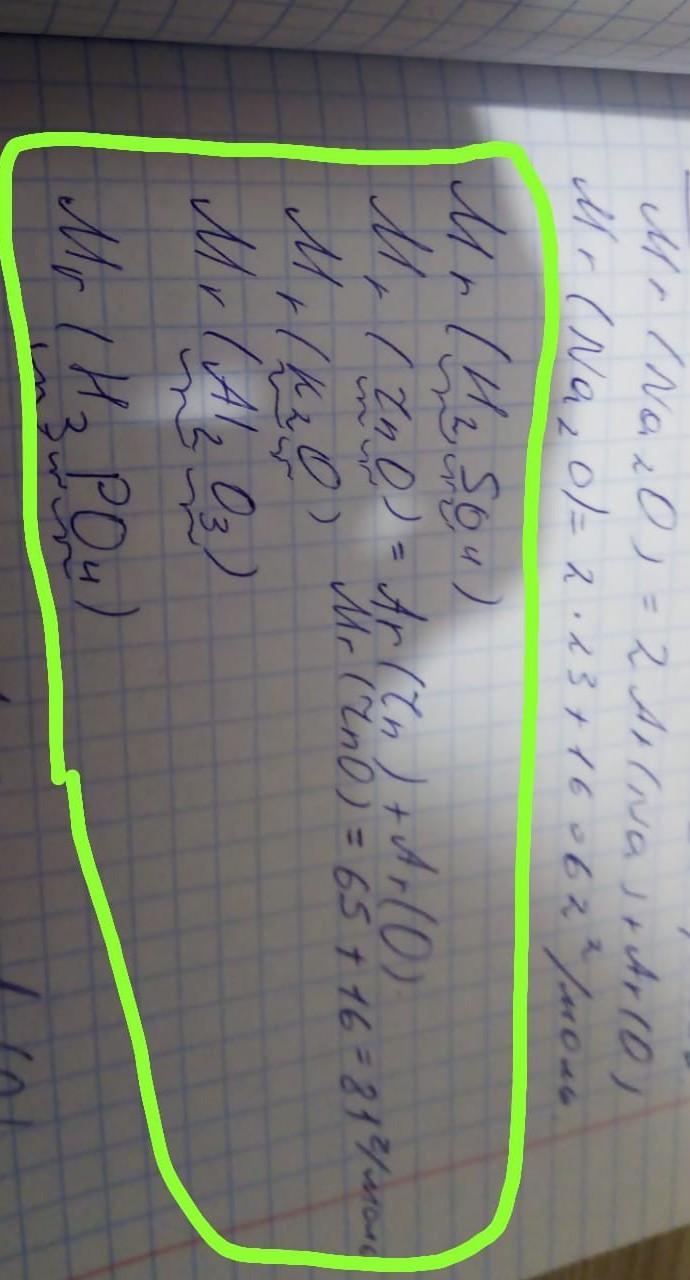 Mr (Na₂O) = 2Ar(Na) + Ar(O)
Mr (Na₂O) = 2 · 23 + 16 = 62 г/моль
Mr (H₂SO₄)
Mr (ZnO) = Ar(Zn) + Ar(O)
Mr (ZnO) = 65 + 16 = 81 г/моль
Mr (K₂O)
Mr (Al₂O₃)
Mr (H₃PO₄)